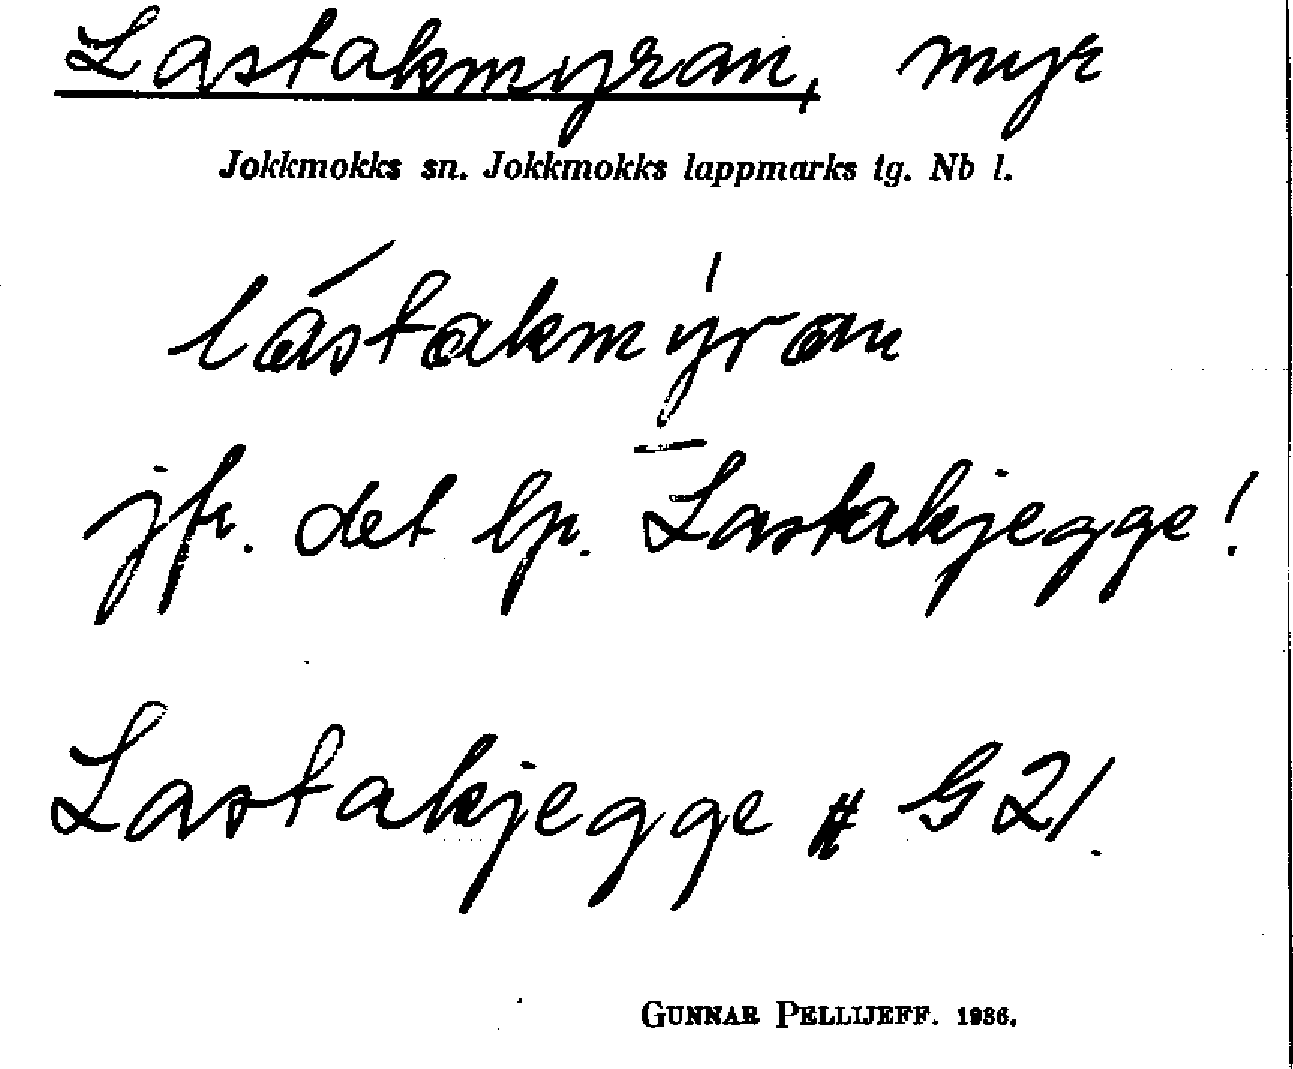 Lastakmyran, myr
Jokkmokks sn. Jokkmokks lappmarks tg. Nb l.
lástakmýran
jfr. det lp. Lastakjegge!
Lastakjegge # G21.
GUNNAR PELLIJEFF. 1936.